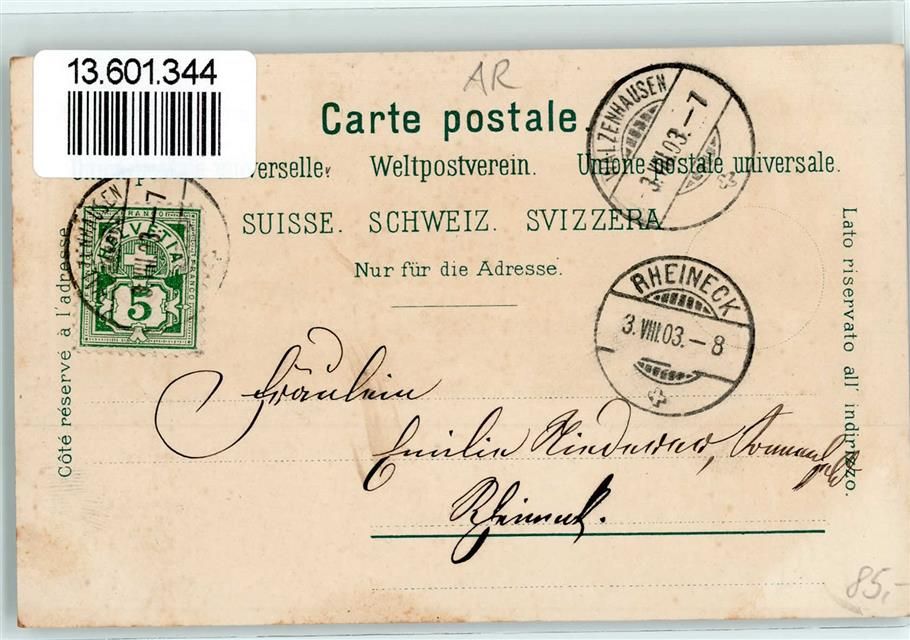 13.601.344
AR
Carte postale
verselle. Weltpostverein. Unione postale universale.
SUISSE. SCHWEIZ. SVIZZERA
Nur für die Adresse.
Côté réservé à l'adresse
Lato riservato all' indirizzo.
WALZENHAUSEN
3.VIII.03.-7
FRANCO
HELVETIA
5
RHEINECK
3.VIII.03.-8
Fräulein
Emilie Niederer,
Rheineck.
85,-